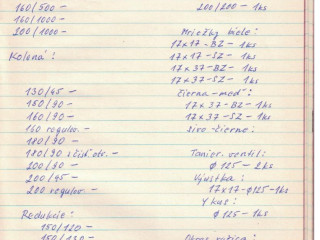 160/500 -
160/1000 -
200/1000 -
Kolená :
130/45 -
150/90 -
160/90 -
160 regulov. -
180/90 -
180/90 s čist. otv. -
200/90 -
200/45 -
200 regulov. -
Redukcie :
150/120 -
150/130 -
200/200 - 1ks
Mriežky biele :
17x17 - BZ - 1ks
17x17 - SZ - 1ks
17x37 - BZ - 1ks
17x37 - SZ - 1ks
čierna - meď :
17x37 - BZ - 1ks
17x37 - SZ - 1ks
sivo - čierne :
Tanier. ventil :
Ø 125 - 2ks
Výustka :
17x17 - Ø125 - 1ks
Y kus :
Ø 125 - 1ks